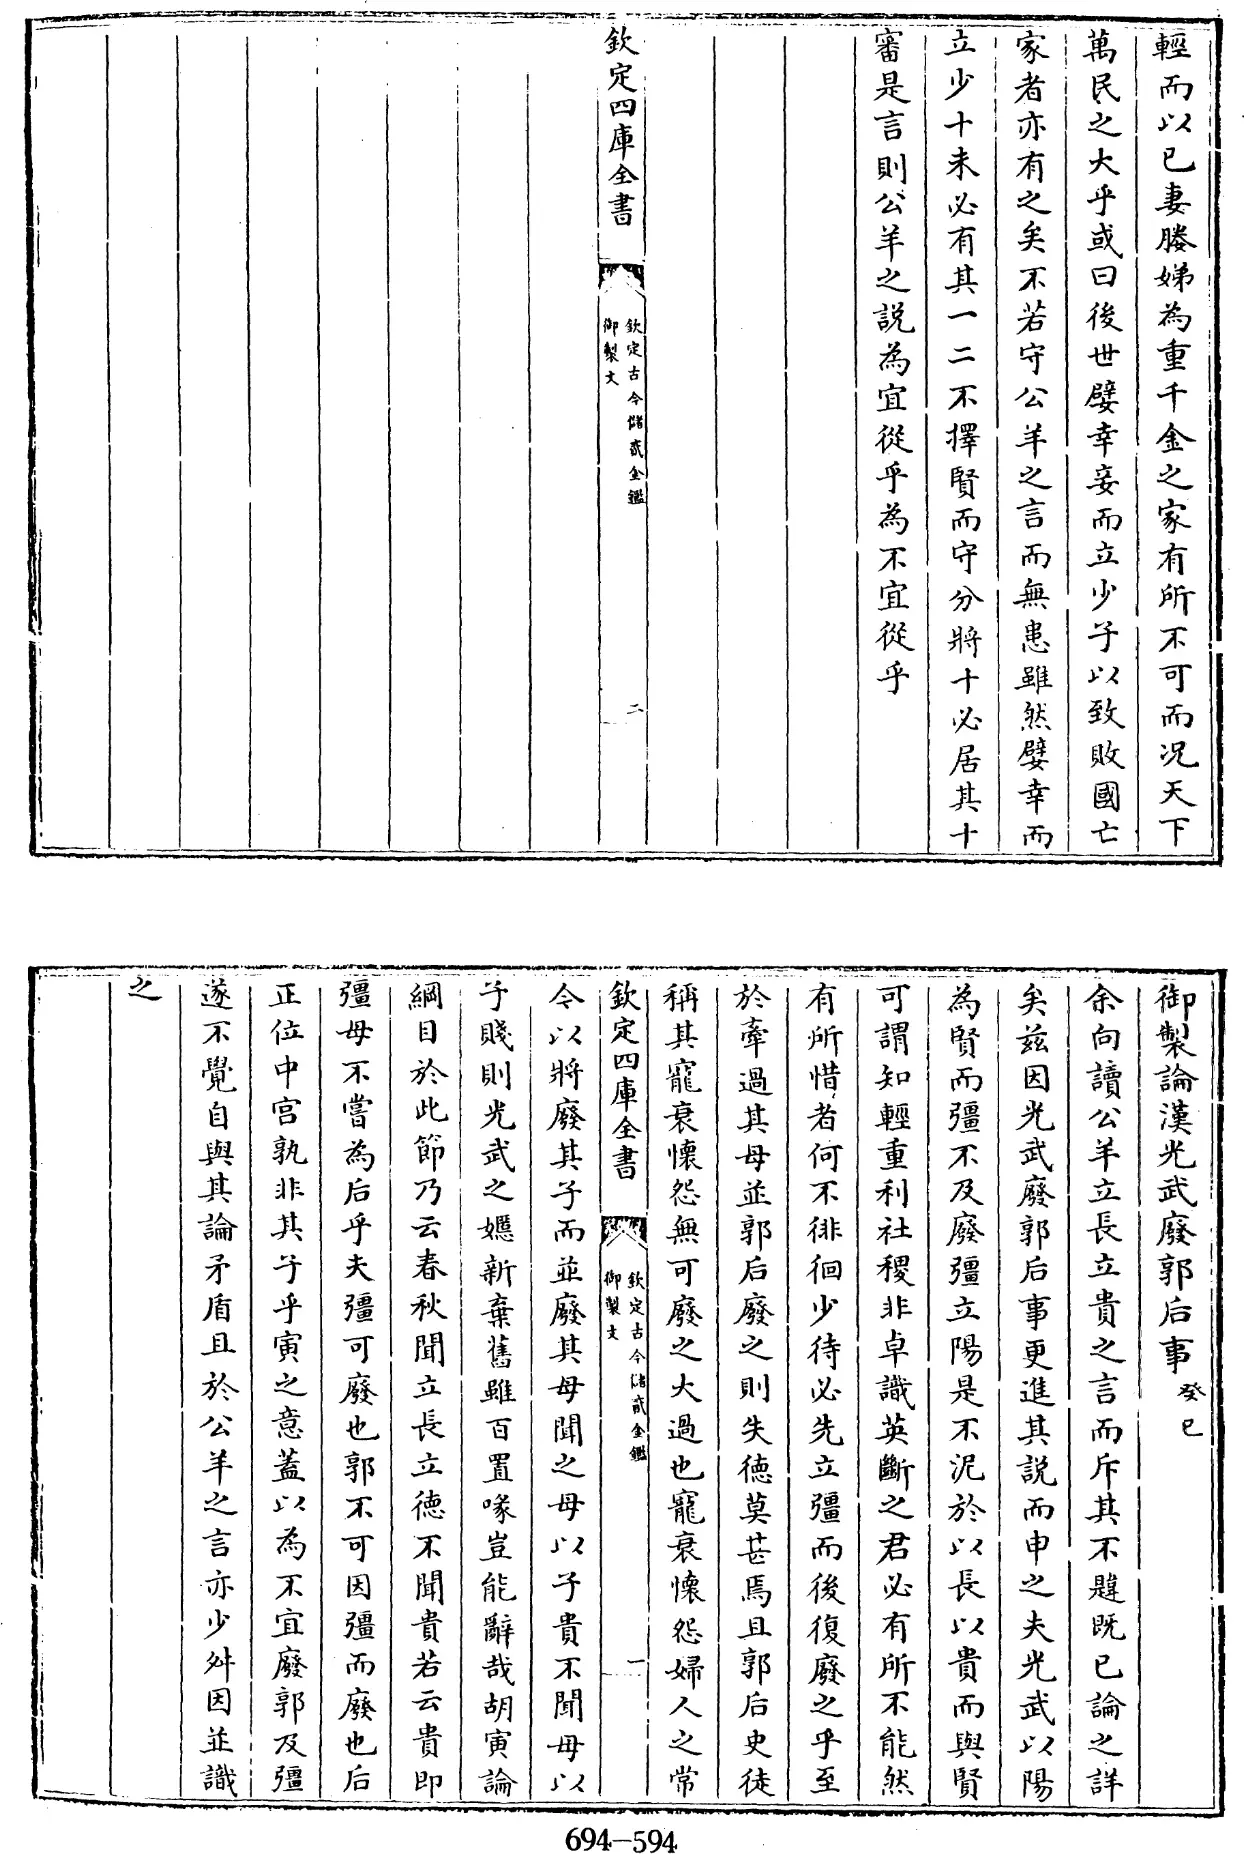 輕而以已妻媵娣為重千金之家有所不可而况天下
萬民之大乎或曰後世嬖幸妾而立少子以致敗國亡
家者亦有之矣不若守公羊之言而無患雖然嬖幸而
立少十未必有其一二不擇賢而守分將十必居其十
審是言則公羊之説為宜從乎為不宜從乎
欽定四庫全書
欽定古今儲貳金鑑
御製文
二
御製論漢光武廢郭后事癸巳
余向讀公羊立長立貴之言而斥其不韙既已論之詳
矣兹因光武廢郭后事更進其説而申之夫光武以陽
為賢而彊不及廢彊立陽是不泥於以長以貴而與賢
可謂知輕重利社稷非卓識英斷之君必有所不能然
有所惜者何不徘徊少待必先立彊而後復廢之乎至
於牽過其母並郭后廢之則失德莫甚焉且郭后史徒
稱其寵衰懷怨無可廢之大過也寵衰懷怨婦人之常
欽定四庫全書
欽定古今儲貳金鑑
御製文
一
令以將廢其子而並廢其母聞之母以子貴不聞母以
子賤則光武之嫟新棄舊雖百置喙豈能辭哉胡寅論
綱目於此節乃云春秋聞立長立德不聞貴若云貴即
彊母不嘗為后乎夫彊可廢也郭不可因彊而廢也后
正位中宫孰非其子乎寅之意蓋以為不宜廢郭及彊
遂不覺自與其論矛盾且於公羊之言亦少舛因並識
之
694-594